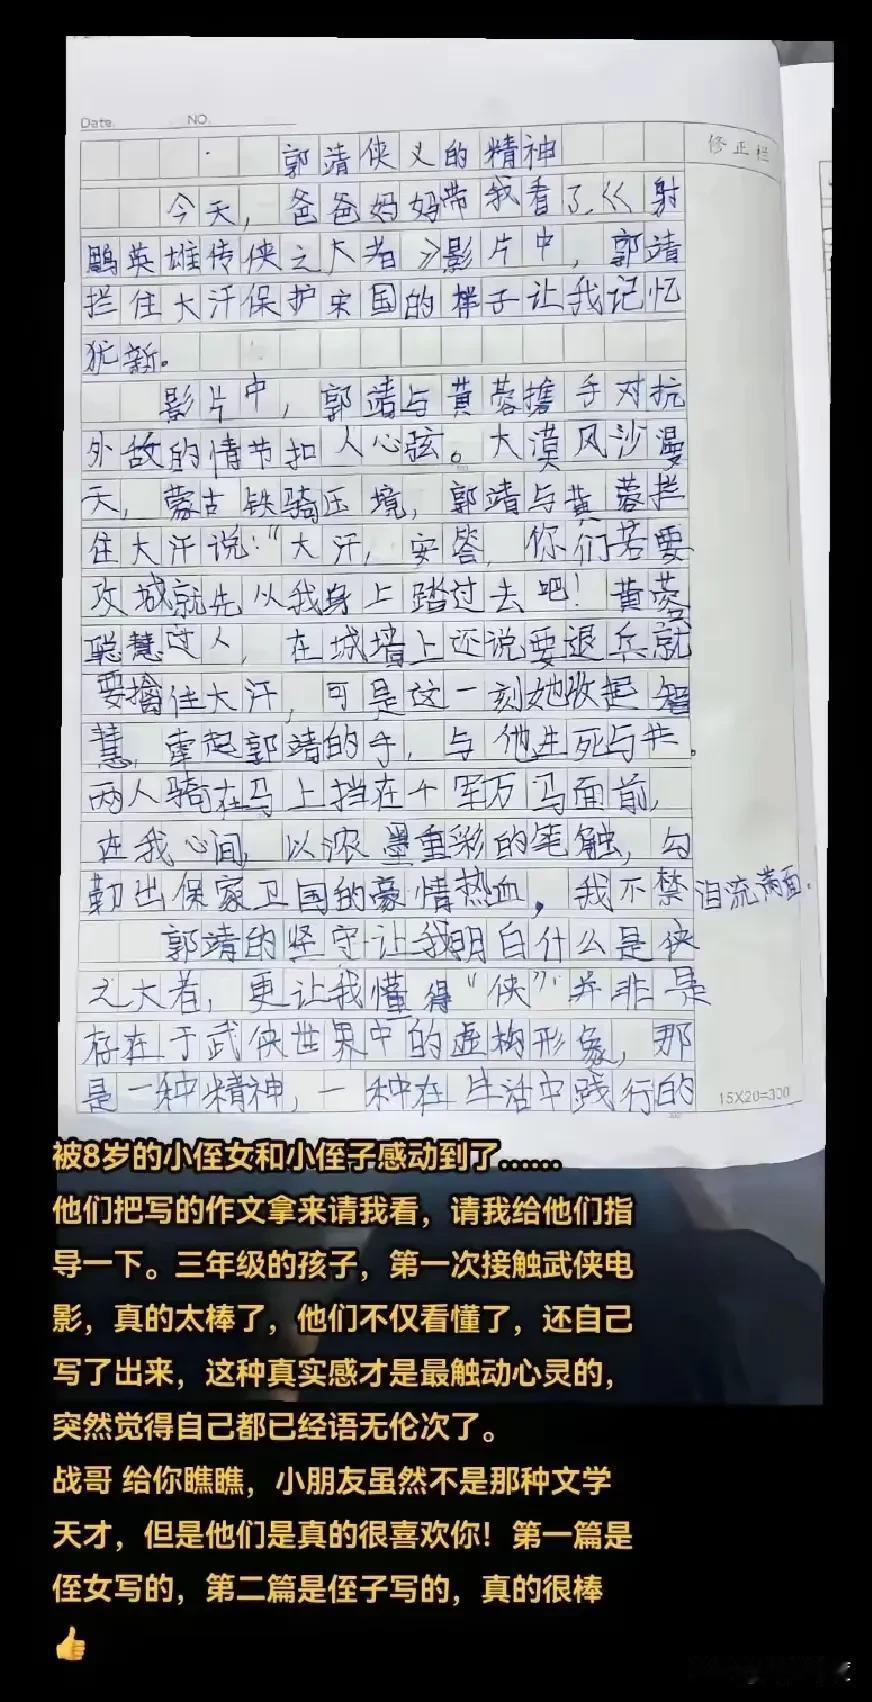 Date. NO.
郭靖侠义的精神
修正栏
今天，爸爸妈妈带我看了《射
鵰英雄传侠之大者》影片中，郭靖
拦住大汗保护宋国的样子让我记忆
犹新。
影片中，郭靖与黄蓉携手对抗
外敌的情节扣人心弦。大漠风沙漫
天，蒙古铁骑压境，郭靖与黄蓉拦
住大汗说：“大汗，安答，你们若要
攻城就先从我身上踏过去吧！黄蓉
聪慧过人，在城墙上还说要退兵就
要擒住大汗，可是这一刻她收起智
慧，牵起郭靖的手，与他生死与共。
两人骑在马上挡在千军万马面前，
在我心间，以浓墨重彩的笔触，勾
勒出保家卫国的豪情热血，我不禁泪流满面.
郭靖的坚守让我明白什么是侠
之大者，更让我懂得“侠”并非是
存在于武侠世界中的虚构形象，那
是一种精神，一种在生活中践行的
15X20=300
被8岁的小侄女和小侄子感动到了……
他们把写的作文拿来请我看，请我给他们指
导一下。三年级的孩子，第一次接触武侠电
影，真的太棒了，他们不仅看懂了，还自己
写了出来，这种真实感才是最触动心灵的，
突然觉得自己都已经语无伦次了。
战哥 给你瞧瞧，小朋友虽然不是那种文学
天才，但是他们是真的很喜欢你！第一篇是
侄女写的，第二篇是侄子写的，真的很棒
👍